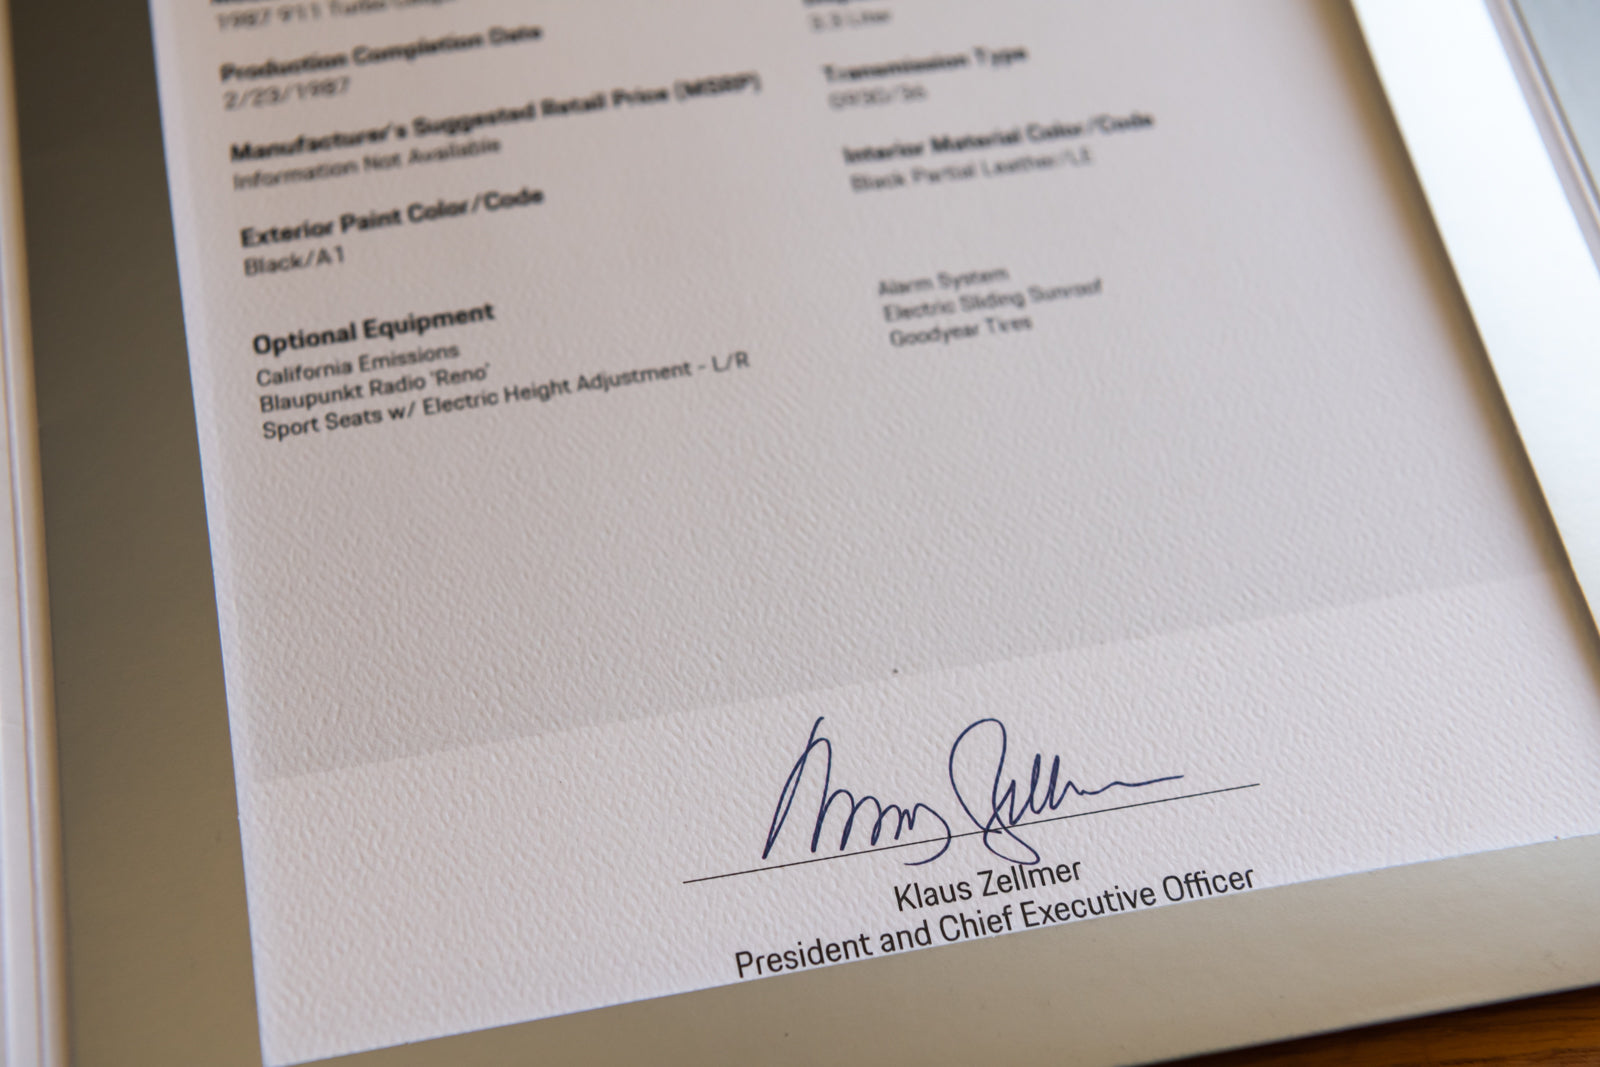 1987 911 Turbo Coupe
3.3 Liter
Production Completion Date
2/23/1987
Transmission Type
Manufacturer's Suggested Retail Price (MSRP)
Information Not Available
Interior Material Color/Code
Black Partial Leather/LE
Exterior Paint Color/Code
Black/A1
Optional Equipment
California Emissions
Blaupunkt Radio 'Reno'
Sport Seats w/ Electric Height Adjustment - L/R
Alarm System
Electric Sliding Sunroof
Goodyear Tires
Klaus Zellmer
President and Chief Executive Officer